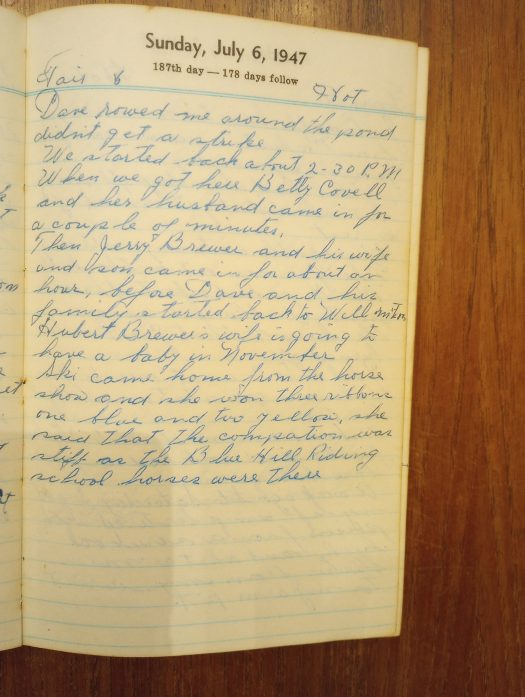 Sunday, July 6, 1947
187th day — 178 days follow
Fair & Hot
Dave rowed me around the pond
didn't get a strike
We started back about 2-30 P.M
When we got here Betty Covell
and her husband came in for
a couple of minutes.
Then Jerry Brewer and his wife
and son, came in for about an
hour, before Dave and his
family started back to Wilminton
Hubert Brewer's wife is going to
have a baby in November
Ski came home from the horse
show and she won three ribbons
one blue and two yellow, she
said that the compsation was
stiff as the Blue Hill Riding
school horses were there